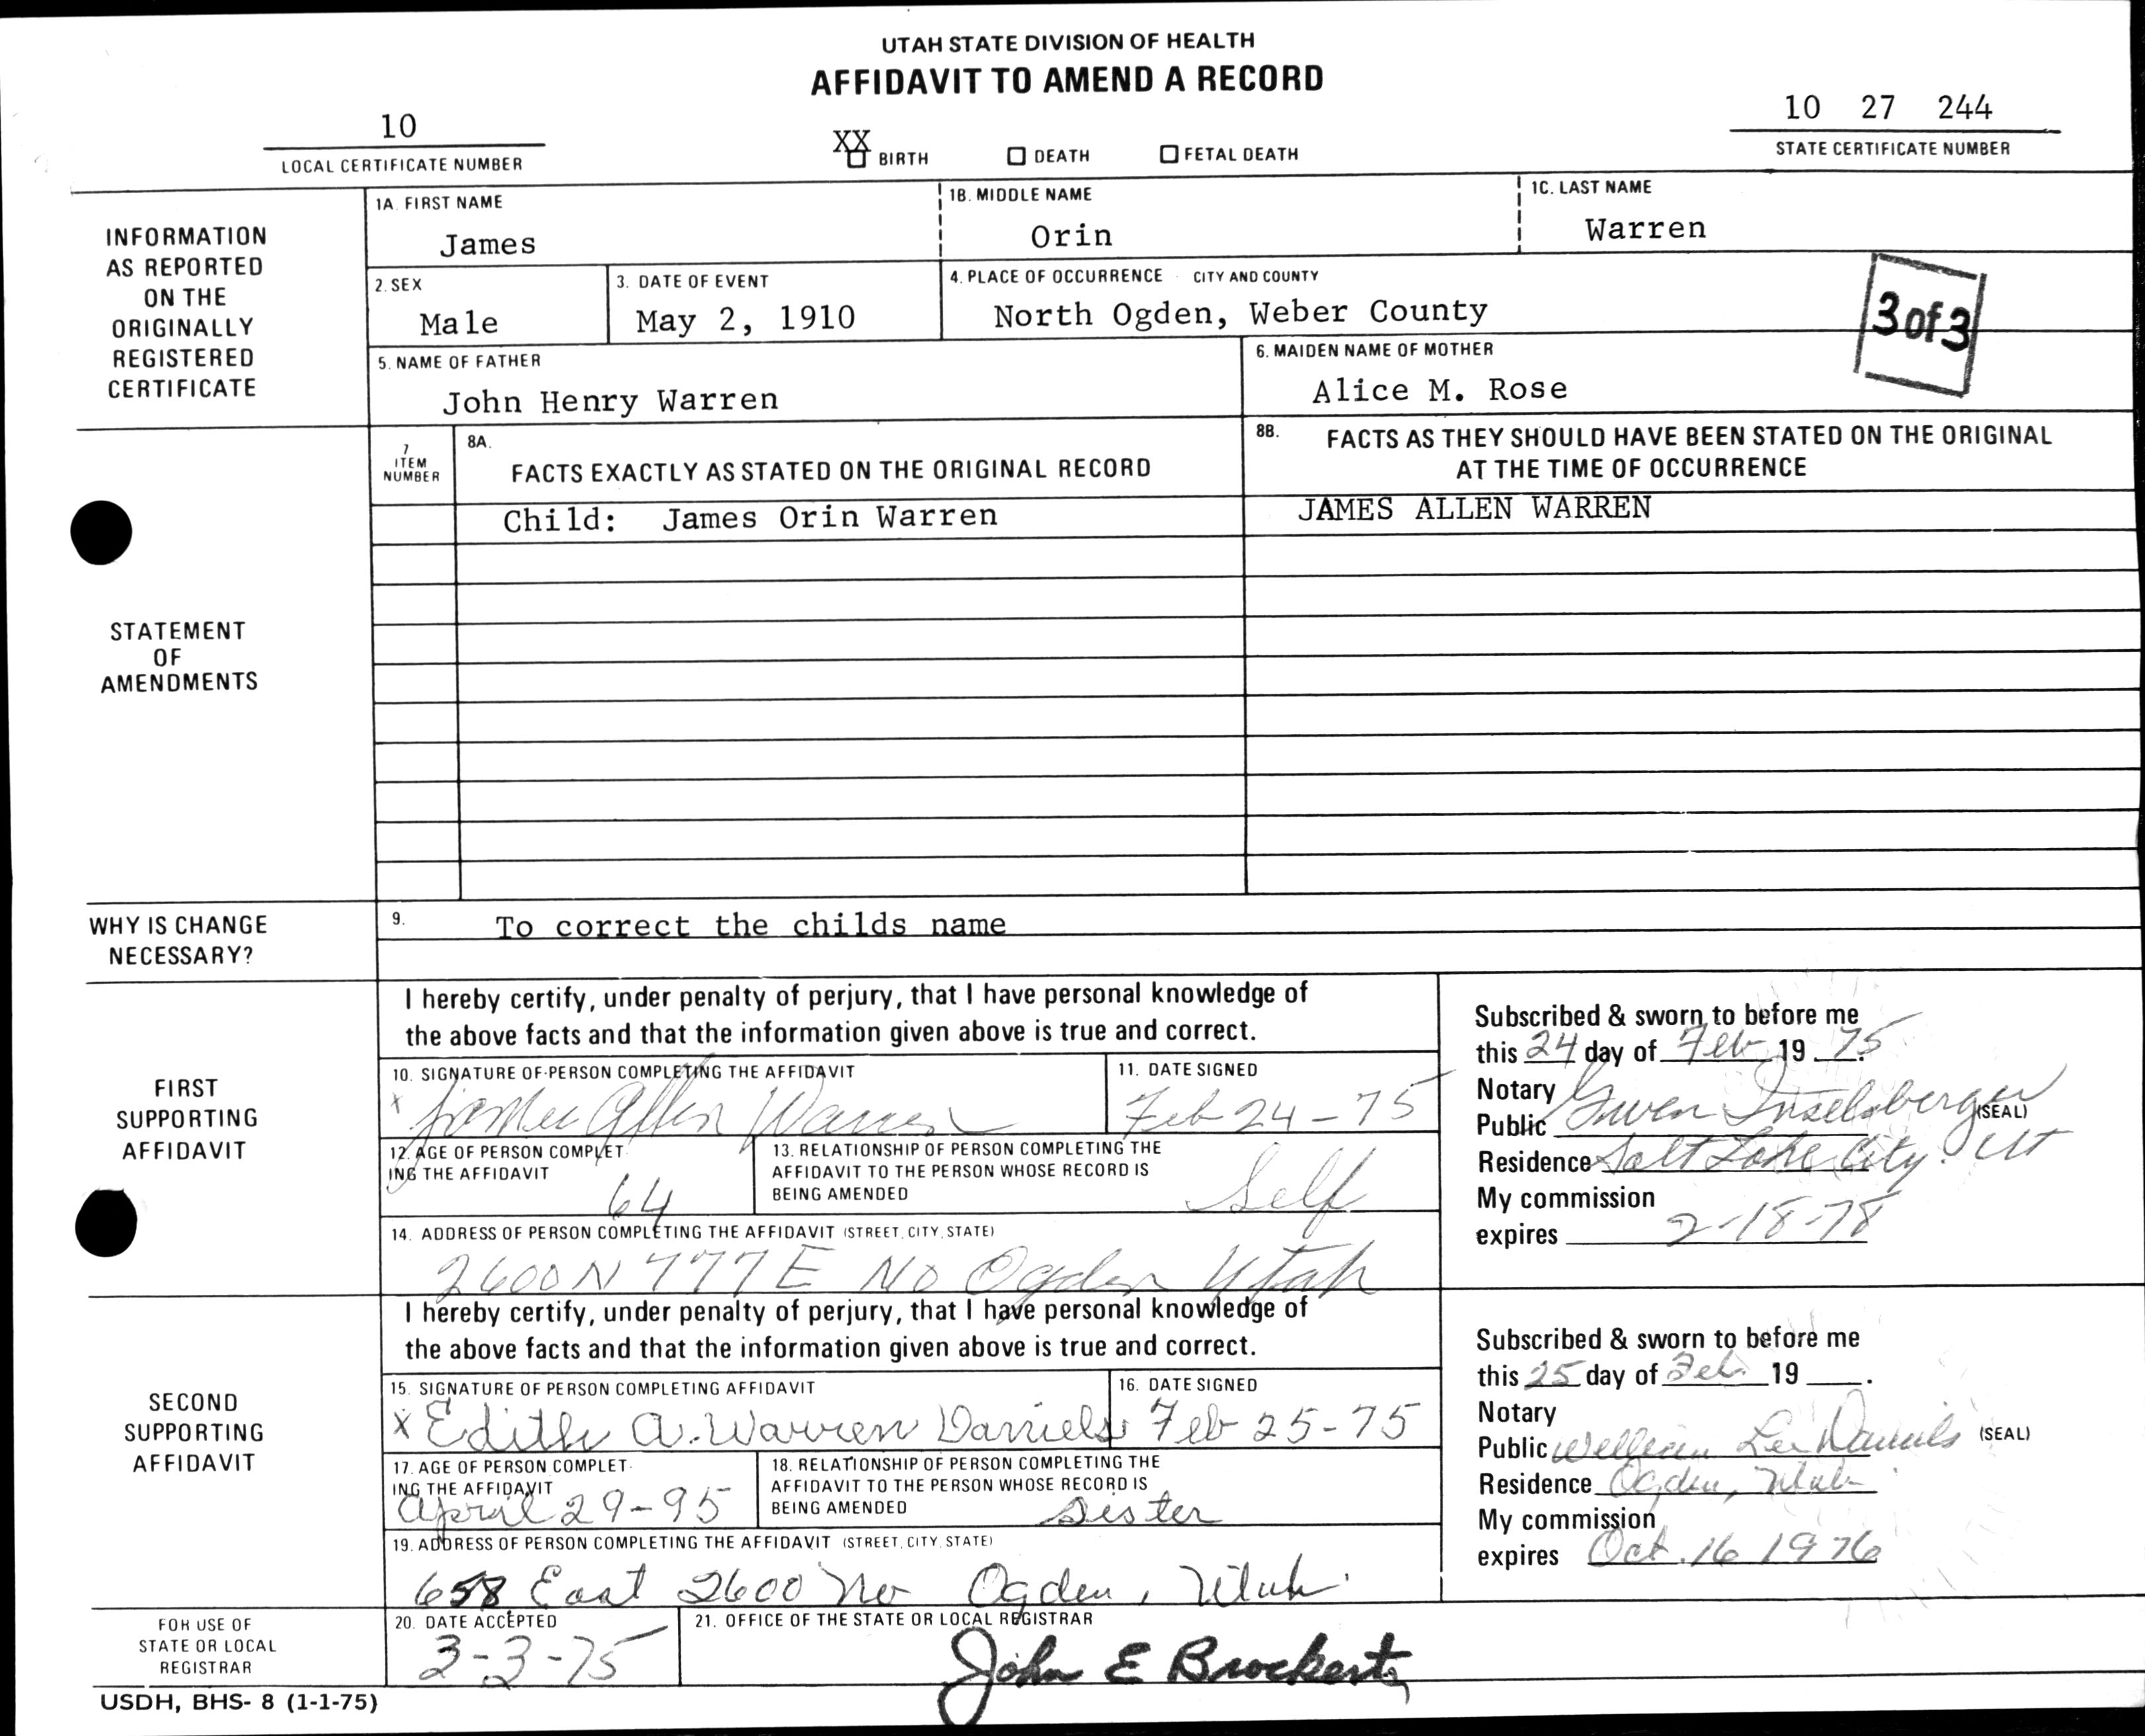 UTAH STATE DIVISION OF HEALTH
AFFIDAVIT TO AMEND A RECORD
10
LOCAL CERTIFICATE NUMBER
XX BIRTH DEATH FETAL DEATH
10 27 244
STATE CERTIFICATE NUMBER
INFORMATION AS REPORTED ON THE ORIGINALLY REGISTERED CERTIFICATE
1A. FIRST NAME
James
1B. MIDDLE NAME
Orin
1C. LAST NAME
Warren
2. SEX
Male
3. DATE OF EVENT
May 2, 1910
4. PLACE OF OCCURRENCE CITY AND COUNTY
North Ogden, Weber County
3 of 3
5. NAME OF FATHER
John Henry Warren
6. MAIDEN NAME OF MOTHER
Alice M. Rose
STATEMENT OF AMENDMENTS
7 ITEM NUMBER
8A. FACTS EXACTLY AS STATED ON THE ORIGINAL RECORD
8B. FACTS AS THEY SHOULD HAVE BEEN STATED ON THE ORIGINAL
AT THE TIME OF OCCURRENCE
Child: James Orin Warren
JAMES ALLEN WARREN
WHY IS CHANGE NECESSARY?
9. To correct the childs name
FIRST SUPPORTING AFFIDAVIT
I hereby certify, under penalty of perjury, that I have personal knowledge of
the above facts and that the information given above is true and correct.
10. SIGNATURE OF PERSON COMPLETING THE AFFIDAVIT
x James Allen Warren
11. DATE SIGNED
Feb 24-75
12. AGE OF PERSON COMPLETING THE AFFIDAVIT
64
13. RELATIONSHIP OF PERSON COMPLETING THE
AFFIDAVIT TO THE PERSON WHOSE RECORD IS
BEING AMENDED
Self
14. ADDRESS OF PERSON COMPLETING THE AFFIDAVIT (STREET, CITY, STATE)
2600 N 777 E No Ogden Utah
Subscribed & sworn to before me
this 24 day of Feb 19 75.
Notary
Public Gwen Inselsberger (SEAL)
Residence Salt Lake City. Ut
My commission
expires 2-18-78
SECOND SUPPORTING AFFIDAVIT
I hereby certify, under penalty of perjury, that I have personal knowledge of
the above facts and that the information given above is true and correct.
15. SIGNATURE OF PERSON COMPLETING AFFIDAVIT
x Edith A. Warren Daniels
16. DATE SIGNED
Feb 25-75
17. AGE OF PERSON COMPLETING THE AFFIDAVIT
April 29-95
18. RELATIONSHIP OF PERSON COMPLETING THE
AFFIDAVIT TO THE PERSON WHOSE RECORD IS
BEING AMENDED
Sister
19. ADDRESS OF PERSON COMPLETING THE AFFIDAVIT (STREET, CITY, STATE)
658 East 2600 No Ogden, Utah
Subscribed & sworn to before me
this 25 day of Feb. 19 .
Notary
Public William Lee Daniels (SEAL)
Residence Ogden, Utah
My commission
expires Oct. 16 1976
FOR USE OF STATE OR LOCAL REGISTRAR
20. DATE ACCEPTED
3-3-75
21. OFFICE OF THE STATE OR LOCAL REGISTRAR
John E Brockert
USDH, BHS- 8 (1-1-75)